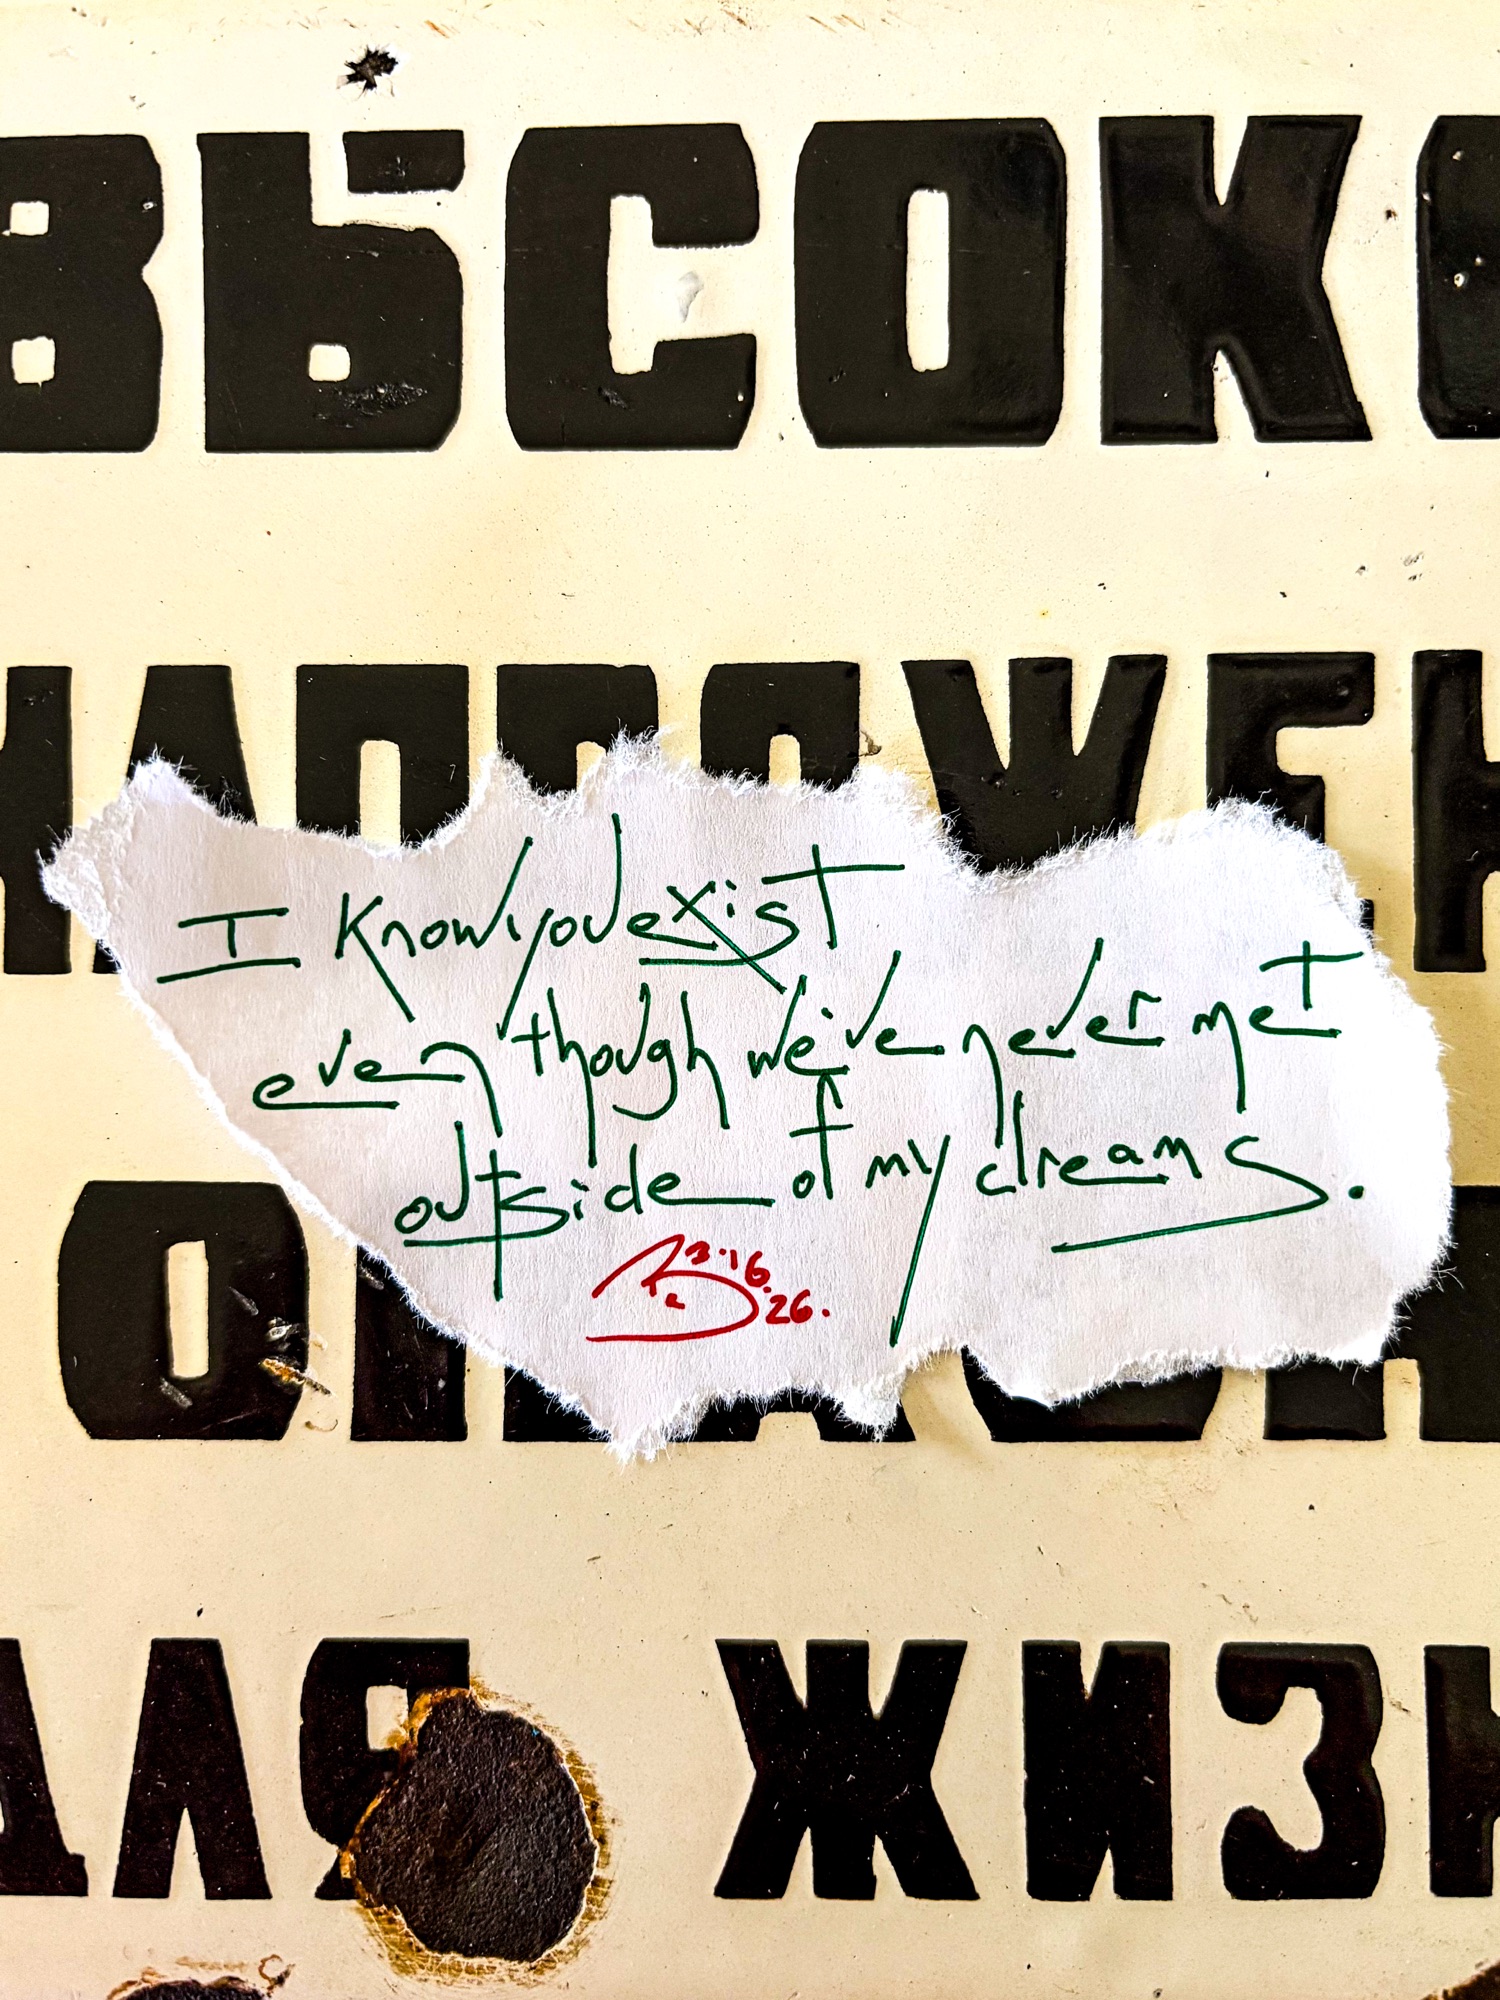 ВЫСОКО
НАПРЯЖЕН
I know you exist
even though we've never met
outside of my dreams.
3.16.26.
ОПАСН
ДЛЯ ЖИЗН